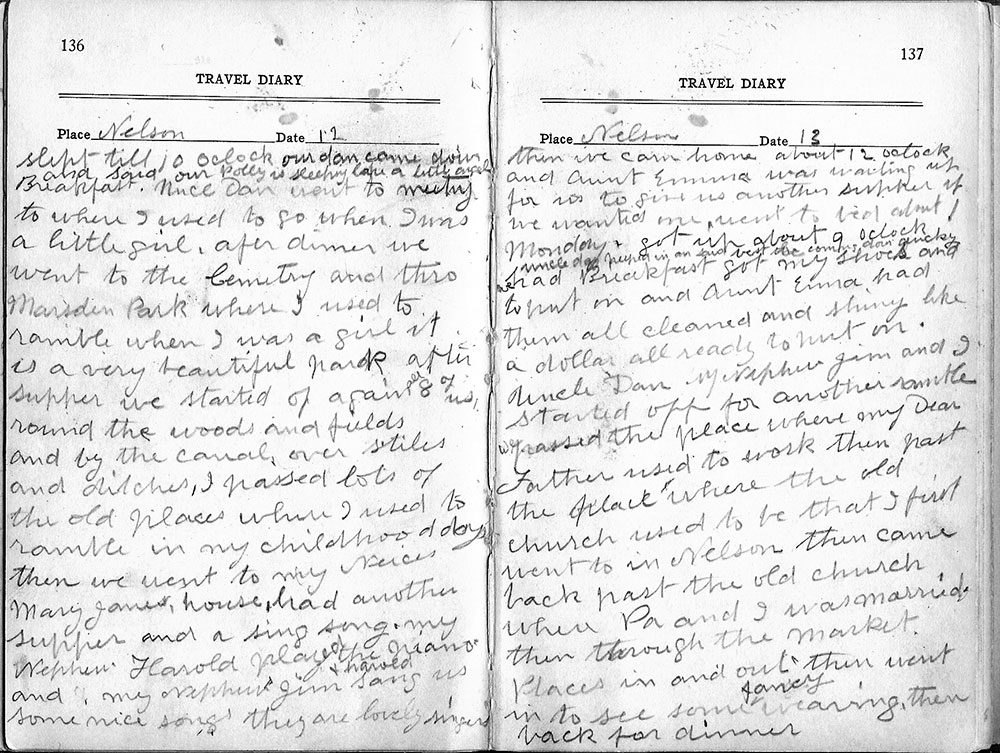 136
TRAVEL DIARY
Place Nelson Date 12
slept till 10 oclock our dan came down
and said our Polly is sleeping like a little angel
Breakfast. Uncle Dan went to meeting
to where I used to go when I was
a little girl. afer dinner we
went to the Cemetry and thro
Marsden Park where I used to
ramble when I was a girl it
is a very beautiful park after
supper we started of again 8 of us,
round the woods and fields
and by the canal, over stiles
and ditches, I passed lots of
the old places where I used to
ramble in my childhood days
then we went to my Neices
Mary Janes, house, had another
supper and a sing song. my
Nephew Harold played the piano
& Harold
and my Nephew Jim sang us
some nice songs they are lovely singers
137
TRAVEL DIARY
Place Nelson Date 13
then we cam home about 12 oclock
and Aunt Emma was waiting up
for us to give us another supper if
we wanted one, went to bed about 1
Monday. got up about 9 oclock
uncle dan peeped in an said best be coming down quickly
we had Breakfast got my shoes and
to put on and Aunt Emma had
them all cleaned and shiny like
a dollar all ready to put on.
Uncle Dan my Nephew Jim and I
started off for another ramble
we passed the place where my Dear
Father used to work then past
the place where the old
church used to be that I first
went to in Nelson then came
back past the old church
where Pa and I was married.
then through the Market
Places in and out then went
fancy
in to see some wearing, then
back for dinner